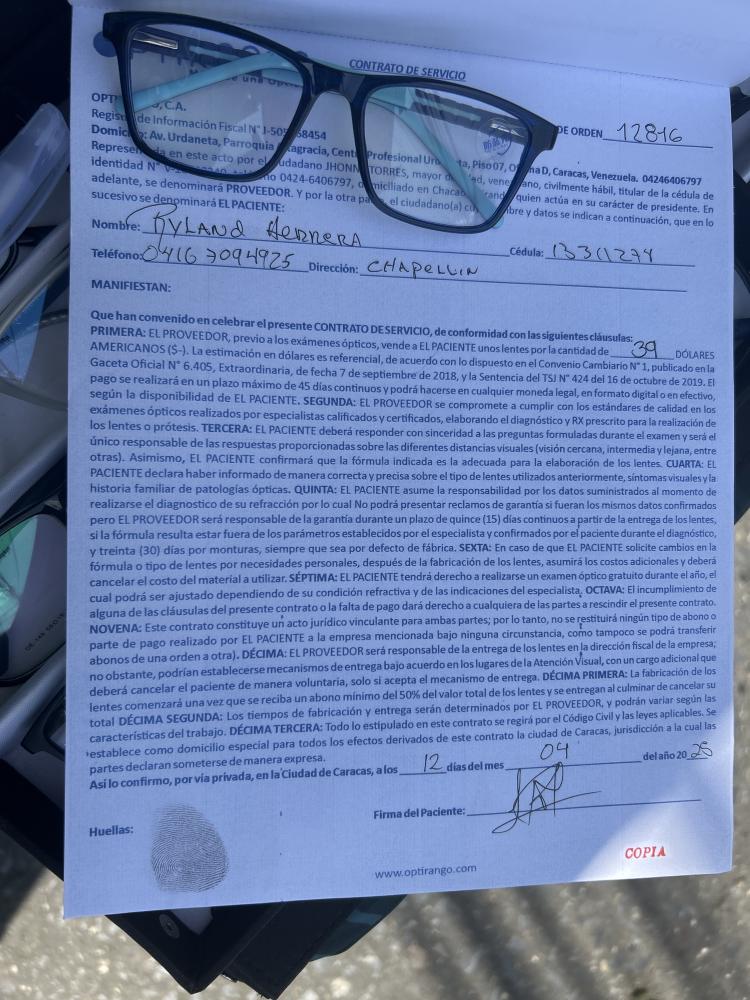 CONTRATO DE SERVICIO
OPTI , C.A.
DE ORDEN 12816
Registro de Información Fiscal N° J-505 58454
Domicilio: Av. Urdaneta, Parroquia Altagracia, Centro Profesional Urdaneta, Piso 07, Oficina D, Caracas, Venezuela. 04246406797
Representada en este acto por el ciudadano JHONN TORRES, mayor de edad, venezolano, civilmente hábil, titular de la cédula de
identidad N° 0424-6406797, domiciliado en Chacao, quien actúa en su carácter de presidente. En
adelante, se denominará PROVEEDOR. Y por la otra parte, el ciudadano(a) cuyo nombre y datos se indican a continuación, que en lo
sucesivo se denominará EL PACIENTE:
Nombre: RYLAND HERRERA Cédula: 13311274
Teléfono: 0416 7094925 Dirección: CHAPELLIN
MANIFIESTAN:
Que han convenido en celebrar el presente CONTRATO DE SERVICIO, de conformidad con las siguientes cláusulas:
PRIMERA: EL PROVEEDOR, previo a los exámenes ópticos, vende a EL PACIENTE unos lentes por la cantidad de 39 DÓLARES
AMERICANOS (S-). La estimación en dólares es referencial, de acuerdo con lo dispuesto en el Convenio Cambiario N° 1, publicado en la
Gaceta Oficial N° 6.405, Extraordinaria, de fecha 7 de septiembre de 2018, y la Sentencia del TSJ N° 424 del 16 de octubre de 2019. El
pago se realizará en un plazo máximo de 45 días continuos y podrá hacerse en cualquier moneda legal, en formato digital o en efectivo,
según la disponibilidad de EL PACIENTE. SEGUNDA: EL PROVEEDOR se compromete a cumplir con los estándares de calidad en los
exámenes ópticos realizados por especialistas calificados y certificados, elaborando el diagnóstico y RX prescrito para la realización de
los lentes o prótesis. TERCERA: EL PACIENTE deberá responder con sinceridad a las preguntas formuladas durante el examen y será el
único responsable de las respuestas proporcionadas sobre las diferentes distancias visuales (visión cercana, intermedia y lejana, entre
otras). Asimismo, EL PACIENTE confirmará que la fórmula indicada es la adecuada para la elaboración de los lentes. CUARTA: EL
PACIENTE declara haber informado de manera correcta y precisa sobre el tipo de lentes utilizados anteriormente, síntomas visuales y la
historia familiar de patologías ópticas. QUINTA: EL PACIENTE asume la responsabilidad por los datos suministrados al momento de
realizarse el diagnostico de su refracción por lo cual No podrá presentar reclamos de garantía si fueran los mismos datos confirmados
pero EL PROVEEDOR será responsable de la garantía durante un plazo de quince (15) días continuos a partir de la entrega de los lentes,
si la fórmula resulta estar fuera de los parámetros establecidos por el especialista y confirmados por el paciente durante el diagnóstico,
y treinta (30) días por monturas, siempre que sea por defecto de fábrica. SEXTA: En caso de que EL PACIENTE solicite cambios en la
fórmula o tipo de lentes por necesidades personales, después de la fabricación de los lentes, asumirá los costos adicionales y deberá
cancelar el costo del material a utilizar. SÉPTIMA: EL PACIENTE tendrá derecho a realizarse un examen óptico gratuito durante el año, el
cual podrá ser ajustado dependiendo de su condición refractiva y de las indicaciones del especialista. OCTAVA: El incumplimiento de
alguna de las cláusulas del presente contrato o la falta de pago dará derecho a cualquiera de las partes a rescindir el presente contrato.
NOVENA: Este contrato constituye un acto jurídico vinculante para ambas partes; por lo tanto, no se restituirá ningún tipo de abono o
parte de pago realizado por EL PACIENTE a la empresa mencionada bajo ninguna circunstancia, como tampoco se podrá transferir
abonos de una orden a otra). DÉCIMA: EL PROVEEDOR será responsable de la entrega de los lentes en la dirección fiscal de la empresa;
no obstante, podrían establecerse mecanismos de entrega bajo acuerdo en los lugares de la Atención Visual, con un cargo adicional que
deberá cancelar el paciente de manera voluntaria, solo si acepta el mecanismo de entrega. DÉCIMA PRIMERA: La fabricación de los
lentes comenzará una vez que se reciba un abono mínimo del 50% del valor total de los lentes y se entregan al culminar de cancelar su
total DÉCIMA SEGUNDA: Los tiempos de fabricación y entrega serán determinados por EL PROVEEDOR, y podrán variar según las
características del trabajo. DÉCIMA TERCERA: Todo lo estipulado en este contrato se regirá por el Código Civil y las leyes aplicables. Se
establece como domicilio especial para todos los efectos derivados de este contrato la ciudad de Caracas, jurisdicción a la cual las
partes declaran someterse de manera expresa.
Así lo confirmo, por vía privada, en la Ciudad de Caracas, a los 12 días del mes 04 del año 2025
Firma del Paciente:
Huellas:
COPIA
www.optirango.com